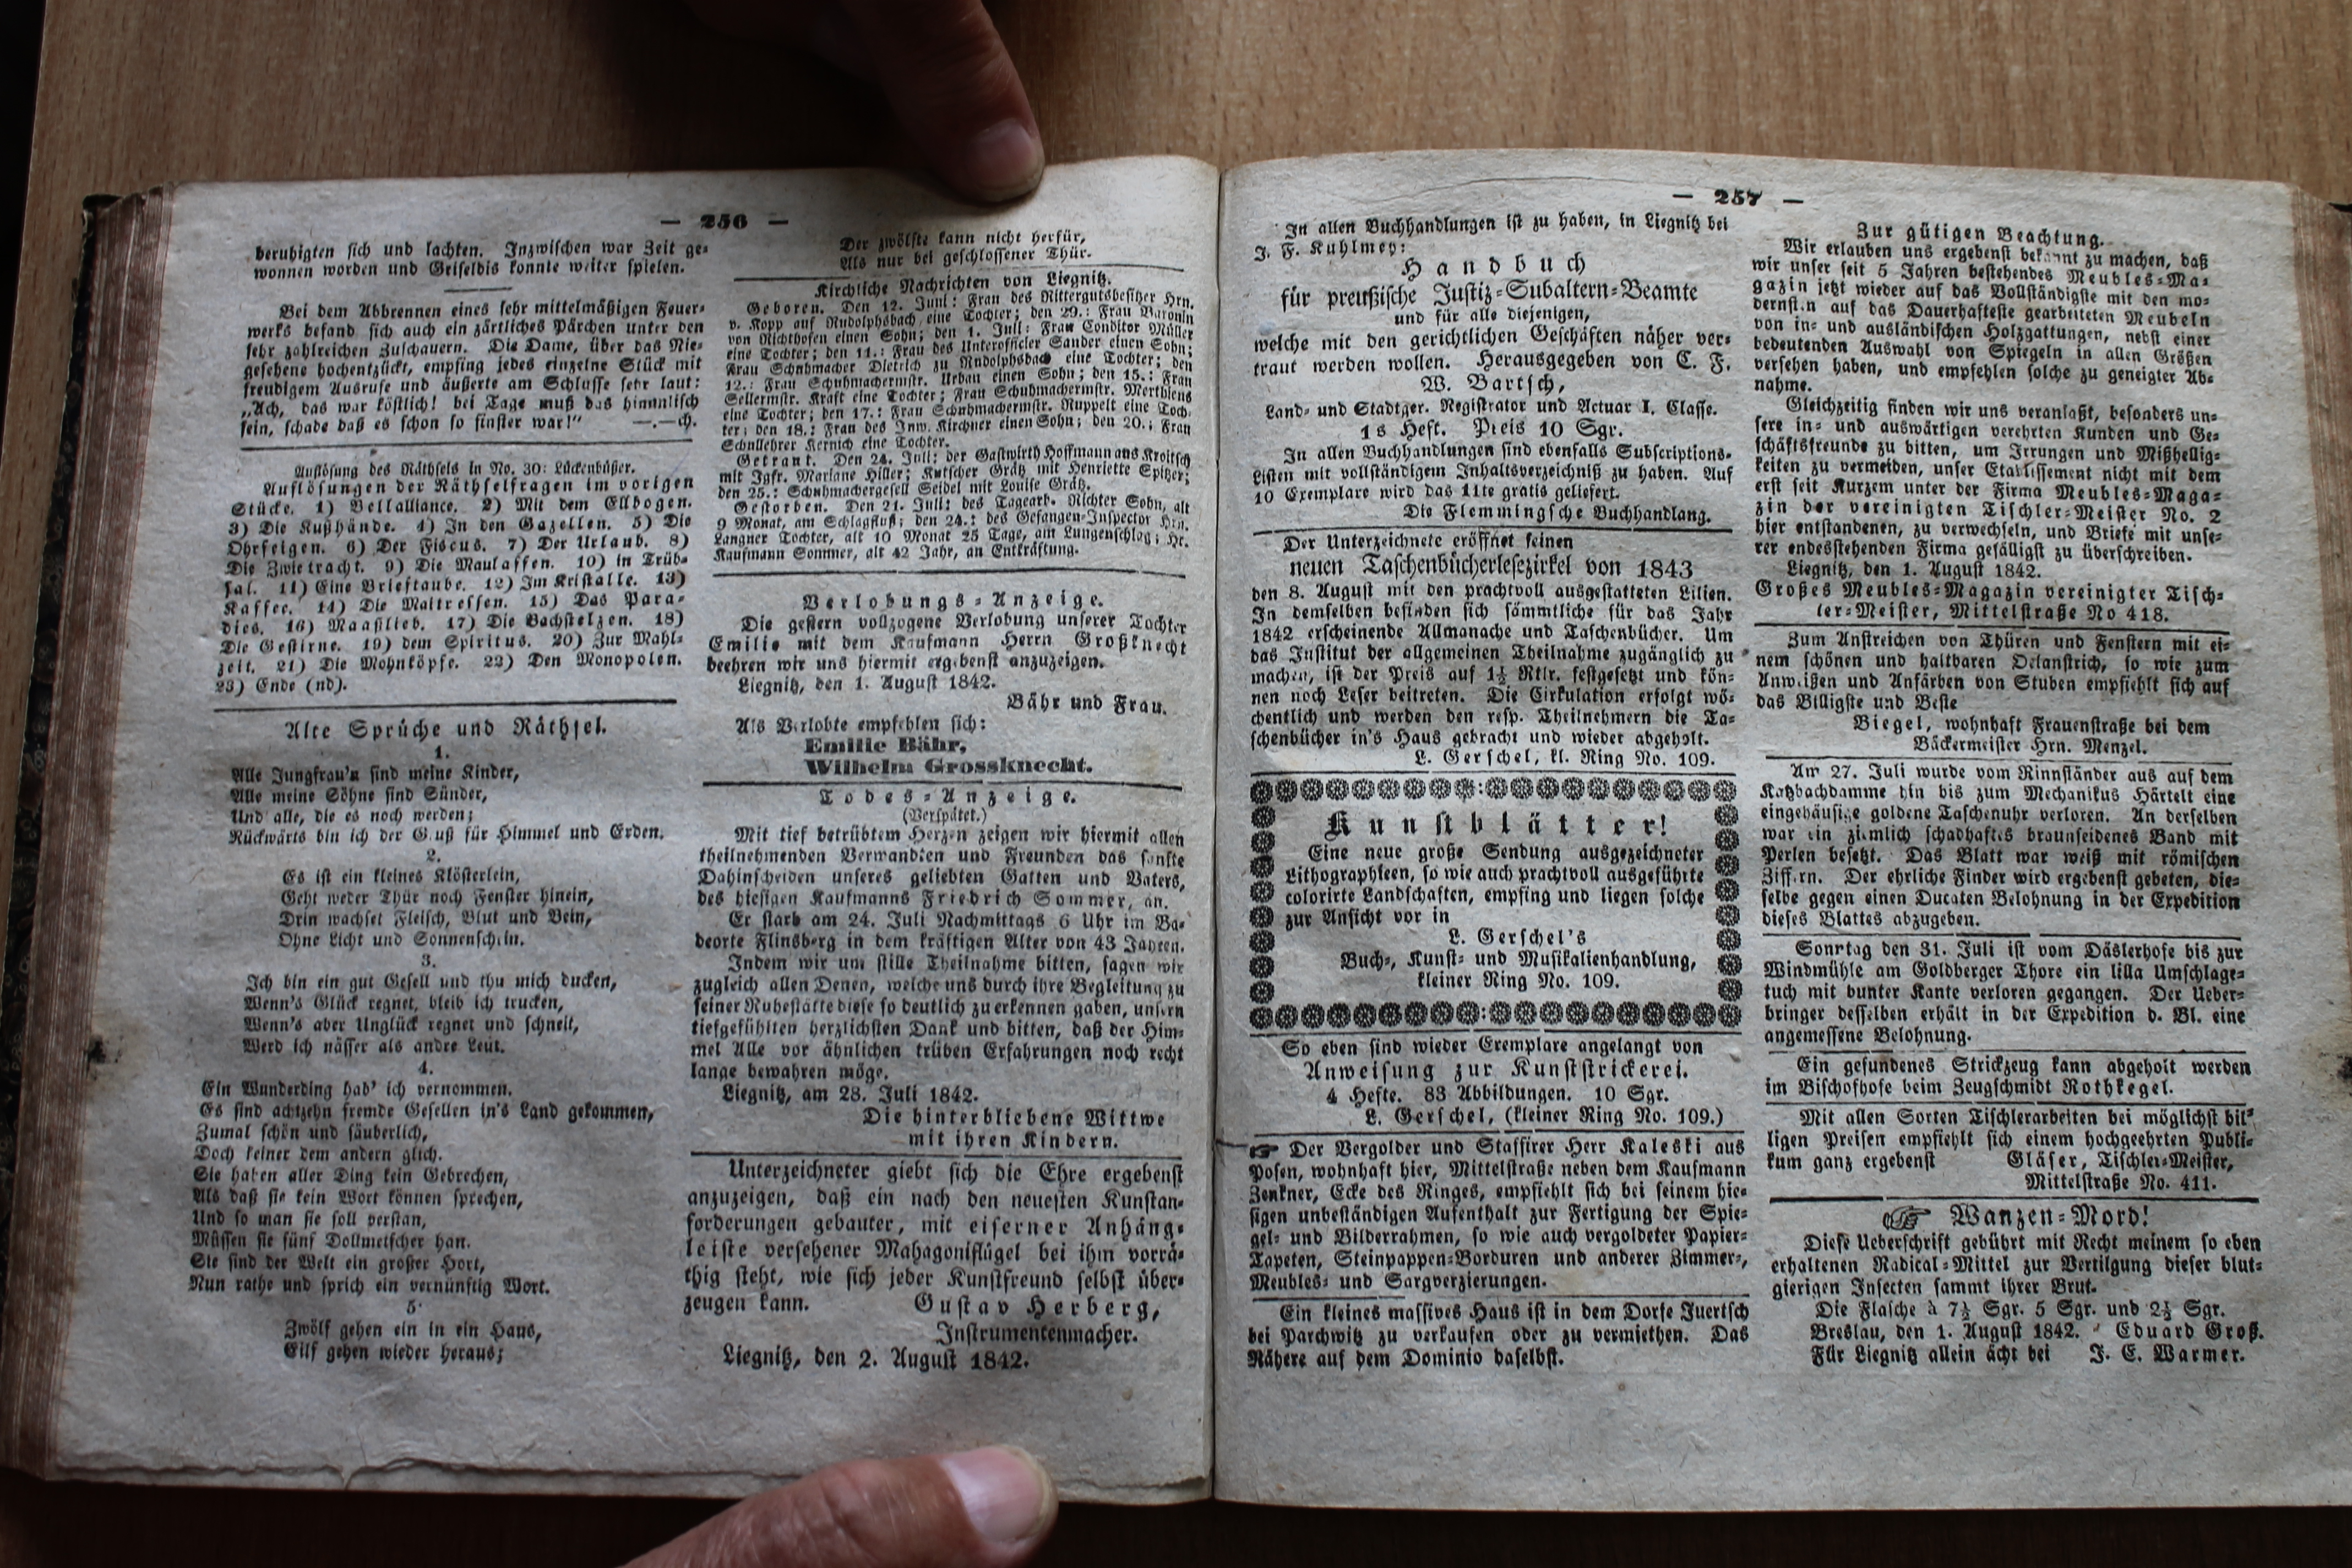 — 256 —
beruhigten sich und lachten. Inzwischen war Zeit ge-
wonnen worden und Griseldis konnte weiter spielen.
Bei dem Abbrennen eines sehr mittelmäßigen Feuer-
werks befand sich auch ein zärtliches Pärchen unter den
sehr zahlreichen Zuschauern. Die Dame, über das Nie-
gesehene hochentzückt, empfing jedes einzelne Stück mit
freudigem Ausrufe und äußerte am Schlusse sehr laut:
„Ach, das war köstlich! bei Tage muß das himmlisch
sein, schade daß es schon so finster war!" —.—ch.
Auflösung des Räthsels in No. 30: Lückenbüßer.
Auflösungen der Räthselfragen im vorigen
Stücke. 1) Bellalliance. 2) Mit dem Ellbogen.
3) Die Kußhände. 4) In den Gazellen. 5) Die
Ohrfeigen. 6) Der Fiscus. 7) Der Urlaub. 8)
Die Zwietracht. 9) Die Maulaffen. 10) in Trüb-
sal. 11) Eine Brieftaube. 12) Im Kristalle. 13)
Kaffee. 14) Die Maitressen. 15) Das Para-
dies. 16) Maaslieb. 17) Die Bachstelzen. 18)
Die Gestirne. 19) dem Spiritus. 20) Zur Mahl-
zeit. 21) Die Mohnköpfe. 22) Den Monopolen.
23) Ende (nd).
Alte Sprüche und Räthsel.
1.
Alle Jungfrau'n sind meine Kinder,
Alle meine Söhne sind Sünder,
Und alle, die es noch werden;
Rückwärts bin ich der Gruß für Himmel und Erden.
2.
Es ist ein kleines Klösterlein,
Geht weder Thür noch Fenster hinein,
Drin wachset Fleisch, Blut und Bein,
Ohne Licht und Sonnenschein.
3.
Ich bin ein gut Gesell und thu mich ducken,
Wenn's Glück regnet, bleib ich trucken,
Wenn's aber Unglück regnet und schneit,
Werd ich nässer als andre Leut.
4.
Ein Wunderding hab' ich vernommen.
Es sind achtzehn fremde Gesellen in's Land gekommen,
Zumal schön und säuberlich,
Doch keiner dem andern glich.
Sie haben aller Ding kein Gebrechen,
Als daß sie kein Wort können sprechen,
Und so man sie soll verstan,
Müssen sie fünf Dollmetscher han.
Sie sind der Welt ein großer Hort,
Nun rathe und sprich ein vernünftig Wort.
5.
Zwölf gehen ein in ein Haus,
Eilf gehen wieder heraus;
Der zwölfte kann nicht herfür,
Als nur bei geschlossener Thür.
Kirchliche Nachrichten von Liegnitz.
Geboren. Den 12. Juni: Frau des Rittergutsbesitzer Hrn.
v. Kopp auf Rudolphsbach eine Tochter; den 29.: Frau Baronin
von Richthofen einen Sohn; den 1. Juli: Frau Conditor Müller
eine Tochter; den 11.: Frau des Unterofficier Sander einen Sohn;
Frau Schuhmacher Dietrich zu Rudolphsbach eine Tochter; den
12.: Frau Schuhmachermstr. Urban einen Sohn; den 15.: Frau
Seilermstr. Kraft eine Tochter; Frau Schuhmachermstr. Merthiens
eine Tochter; den 17.: Frau Schuhmachermstr. Ruppelt eine Toch-
ter; den 18.: Frau des Inw. Kirchner einen Sohn; den 20.: Frau
Schullehrer Kernich eine Tochter.
Getraut. Den 24. Juli: der Gastwirth Hoffmann aus Kroitsch
mit Jgfr. Mariane Hiller; Kutscher Grätz mit Henriette Spitzer;
den 25.: Schuhmachergesell Seidel mit Louise Grätz.
Gestorben. Den 21. Juli: des Tagearb. Richter Sohn, alt
9 Monat, am Schlagfluß; den 24.: des Gefangen-Inspector Hrn.
Langner Tochter, alt 10 Monat 25 Tage, am Lungenschlag; Hr.
Kaufmann Sommer, alt 42 Jahr, an Entkräftung.
Verlobungs-Anzeige.
Die gestern vollzogene Verlobung unserer Tochter
Emilie mit dem Kaufmann Herrn Großknecht
beehren wir uns hiermit ergebenst anzuzeigen.
Liegnitz, den 1. August 1842.
Bähr und Frau.
Als Verlobte empfehlen sich:
Emilie Bähr,
Wilhelm Grossknecht.
Todes-Anzeige.
(Verspätet.)
Mit tief betrübtem Herzen zeigen wir hiermit allen
theilnehmenden Verwandten und Freunden das sanfte
Dahinscheiden unseres geliebten Gatten und Vaters,
des hiesigen Kaufmanns Friedrich Sommer, an.
Er starb am 24. Juli Nachmittags 6 Uhr im Ba-
deorte Flinsberg in dem kräftigen Alter von 43 Jahren.
Indem wir um stille Theilnahme bitten, sagen wir
zugleich allen Denen, welche uns durch ihre Begleitung zu
seiner Ruhestätte diese so deutlich zu erkennen gaben, unsern
tiefgefühlten herzlichsten Dank und bitten, daß der Him-
mel Alle vor ähnlichen trüben Erfahrungen noch recht
lange bewahren möge.
Liegnitz, am 28. Juli 1842.
Die hinterbliebene Wittwe
mit ihren Kindern.
Unterzeichneter giebt sich die Ehre ergebenst
anzuzeigen, daß ein nach den neuesten Kunstan-
forderungen gebauter, mit eiserner Anhäng-
leiste versehener Mahagoniflügel bei ihm vorrä-
thig steht, wie sich jeder Kunstfreund selbst über-
zeugen kann. Gustav Herberg,
Instrumentenmacher.
Liegnitz, den 2. August 1842.
— 257 —
In allen Buchhandlungen ist zu haben, in Liegnitz bei
J. F. Kuhlmey:
Handbuch
für preußische Justiz-Subaltern-Beamte
und für alle diejenigen,
welche mit den gerichtlichen Geschäften näher ver-
traut werden wollen. Herausgegeben von C. F.
W. Bartsch,
Land- und Stadtger. Registrator und Actuar I. Classe.
1s Heft. Preis 10 Sgr.
In allen Buchhandlungen sind ebenfalls Subscriptions-
Listen mit vollständigem Inhaltsverzeichniß zu haben. Auf
10 Exemplare wird das 11te gratis geliefert.
Die Flemmingsche Buchhandlang.
Der Unterzeichnete eröffnet seinen
neuen Taschenbücherlesezirkel von 1843
den 8. August mit den prachtvoll ausgestatteten Lilien.
In demselben befinden sich sämmtliche für das Jahr
1842 erscheinende Allmanache und Taschenbücher. Um
das Institut der allgemeinen Theilnahme zugänglich zu
machen, ist der Preis auf 1½ Rtlr. festgesetzt und kön-
nen noch Leser beitreten. Die Cirkulation erfolgt wö-
chentlich und werden den resp. Theilnehmern die Ta-
schenbücher in's Haus gebracht und wieder abgeholt.
L. Gerschel, kl. Ring No. 109.
Kunstblätter!
Eine neue große Sendung ausgezeichneter
Lithographieen, so wie auch prachtvoll ausgeführte
colorirte Landschaften, empfing und liegen solche
zur Ansicht vor in
L. Gerschel's
Buch-, Kunst- und Musikalienhandlung,
kleiner Ring No. 109.
So eben sind wieder Exemplare angelangt von
Anweisung zur Kunststrickerei.
4 Hefte. 83 Abbildungen. 10 Sgr.
L. Gerschel, (kleiner Ring No. 109.)
☞ Der Vergolder und Staffirer Herr Kaleski aus
Posen, wohnhaft hier, Mittelstraße neben dem Kaufmann
Zenkner, Ecke des Ringes, empfiehlt sich bei seinem hie-
sigen unbeständigen Aufenthalt zur Fertigung der Spie-
gel- und Bilderrahmen, so wie auch vergoldeter Papier-
Tapeten, Steinpappen-Borduren und anderer Zimmer-,
Meubles- und Sargverzierungen.
Ein kleines massives Haus ist in dem Dorfe Juertsch
bei Parchwitz zu verkaufen oder zu vermiethen. Das
Nähere auf dem Dominio daselbst.
Zur gütigen Beachtung.
Wir erlauben uns ergebenst bekannt zu machen, daß
wir unser seit 5 Jahren bestehendes Meubles-Ma-
gazin jetzt wieder auf das Vollständigste mit den mo-
dernsten auf das Dauerhafteste gearbeiteten Meubeln
von in- und ausländischen Holzgattungen, nebst einer
bedeutenden Auswahl von Spiegeln in allen Größen
versehen haben, und empfehlen solche zu geneigter Ab-
nahme.
Gleichzeitig finden wir uns veranlaßt, besonders un-
sere in- und auswärtigen verehrten Kunden und Ge-
schäftsfreunde zu bitten, um Irrungen und Mißhellig-
keiten zu vermeiden, unser Etablissement nicht mit dem
erst seit Kurzem unter der Firma Meubles-Maga-
zin der vereinigten Tischler-Meister No. 2
hier entstandenen, zu verwechseln, und Briefe mit unse-
rer endesstehenden Firma gefälligst zu überschreiben.
Liegnitz, den 1. August 1842.
Großes Meubles-Magazin vereinigter Tisch-
ler-Meister, Mittelstraße No 418.
Zum Anstreichen von Thüren und Fenstern mit ei-
nem schönen und haltbaren Oelanstrich, so wie zum
Anweißen und Anfärben von Stuben empfiehlt sich auf
das Billigste und Beste
Biegel, wohnhaft Frauenstraße bei dem
Bäckermeister Hrn. Menzel.
Am 27. Juli wurde vom Rinnständer aus auf dem
Katzbachdamme hin bis zum Mechanikus Härtelt eine
eingehäusige goldene Taschenuhr verloren. An derselben
war ein ziemlich schadhaftes braunseidenes Band mit
Perlen besetzt. Das Blatt war weiß mit römischen
Ziffern. Der ehrliche Finder wird ergebenst gebeten, die-
selbe gegen einen Ducaten Belohnung in der Expedition
dieses Blattes abzugeben.
Sonntag den 31. Juli ist vom Däslerhofe bis zur
Windmühle am Goldberger Thore ein lilla Umschlage-
tuch mit bunter Kante verloren gegangen. Der Ueber-
bringer desselben erhält in der Expedition d. Bl. eine
angemessene Belohnung.
Ein gefundenes Strickzeug kann abgeholt werden
im Bischofhofe beim Zeugschmidt Rothkegel.
Mit allen Sorten Tischlerarbeiten bei möglichst bil-
ligen Preisen empfiehlt sich einem hochgeehrten Publi-
kum ganz ergebenst Gläser, Tischler-Meister,
Mittelstraße No. 411.
☞ Wanzen-Mord!
Diese Ueberschrift gebührt mit Recht meinem so eben
erhaltenen Radical-Mittel zur Vertilgung dieser blut-
gierigen Insecten sammt ihrer Brut.
Die Flasche à 7½ Sgr. 5 Sgr. und 2½ Sgr.
Breslau, den 1. August 1842. Eduard Groß.
Für Liegnitz allein ächt bei J. E. Warmer.